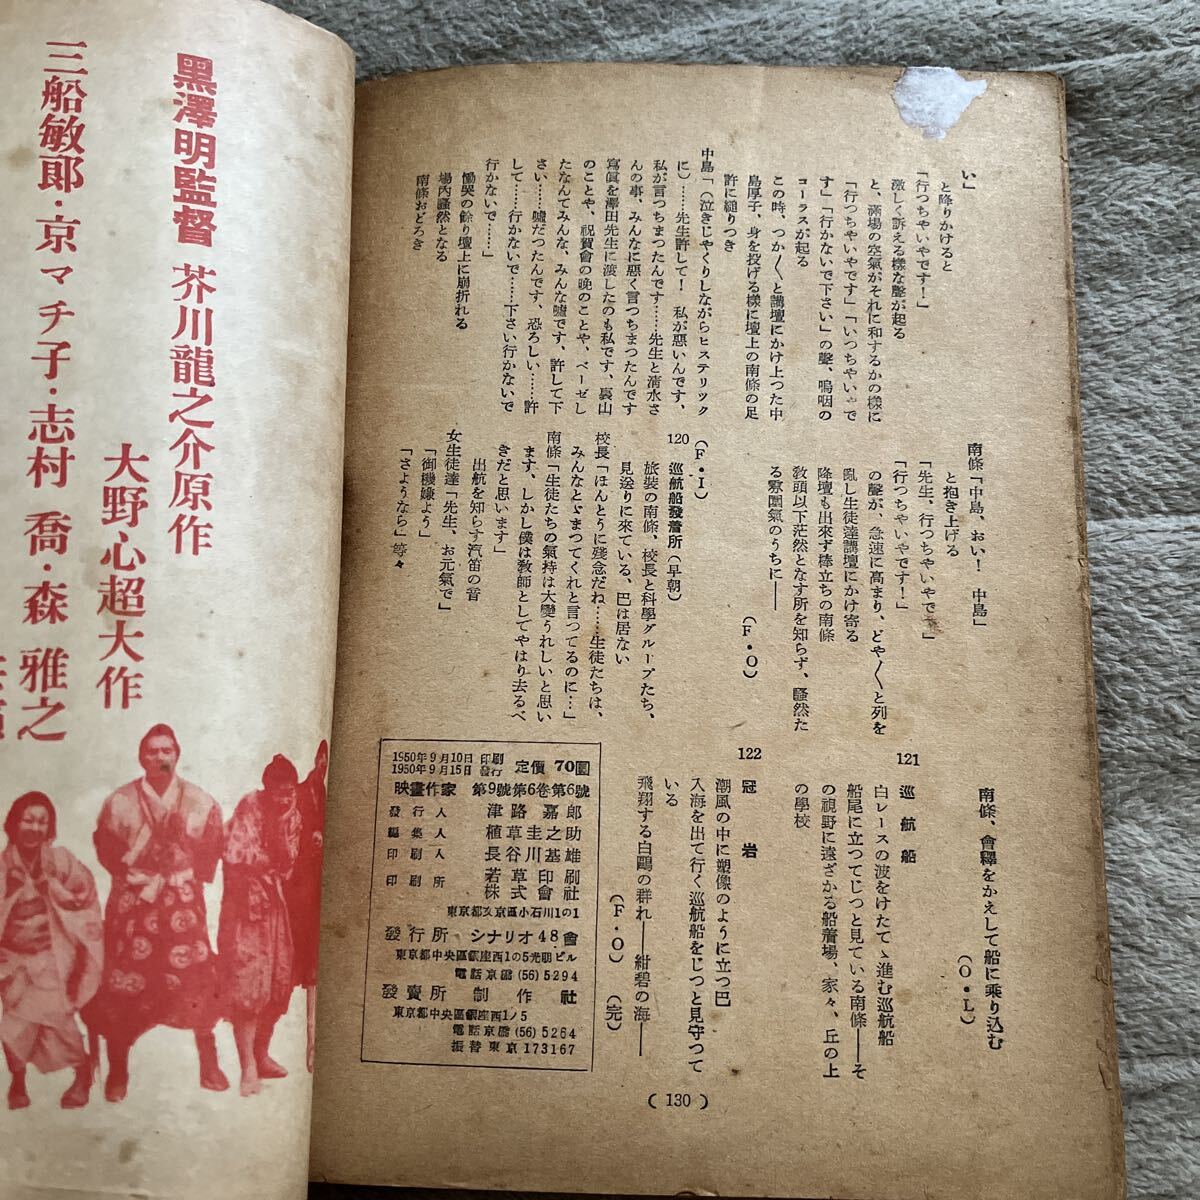 い」
と降りかけると
「行つちやいやです！」
激しく訴える様な聲が起る
と、滿場の空氣がそれに和するかの樣に
「行つちやいやです」「いつちやいやで
す」「行かないで下さい」の聲、嗚咽の
コーラスが起る
この時、つか〱と講壇にかけ上つた中
島厚子、身を投げる樣に壇上の南條の足
許に縋りつき
中島「（泣きじやくりしながらヒステリック
に）……先生許して！　私が惡いんです、
私が言つちまつたんです……先生と清水さ
んの事、みんなに惡く言つちまつたんです
寫眞を澤田先生に渡したのも私です、裏山
のことや、祝賀會の晚のことや、ベーゼし
たなんてみんな、みんな嘘です、許して下
さい……嘘だつたんです、恐ろしい……許
して……行かないで……下さい行かないで
行かないで……」
慟哭の餘り壇上に崩折れる
場內騷然となる
南條おどろき
南條「中島、おい！　中島」
と抱き上げる
「先生、行つちやいやです」
「行つちやいやです！」
の聲が、急速に高まり、どや〱と列を
亂し生徒達講壇にかけ寄る
降壇も出來ず棒立ちの南條
敎頭以下茫然となす所を知らず、騷然た
る雰圍氣のうちに――
（F・O）
（F・I）
120　巡航船發着所（早朝）
旅裝の南條、校長と科學グループたち、
見送りに來ている、巴は居ない
校長「ほんとうに殘念だね……生徒たちは、
みんなとゞまつてくれと言つてるのに…」
南條「生徒たちの氣持は大變うれしいと思い
ます、しかし僕は敎師としてやはり去るべ
きだと思います」
出航を知らす汽笛の音
女生徒達「先生、お元氣で」
「御機嫌よう」
「さようなら」等々
南條、會釋をかえして船に乘り込む
（O・L）
121　巡航船
白レースの波をけたてゝ進む巡航船
船尾に立つてじつと見ている南條――そ
の視野に遠ざかる船着場、家々、丘の上
の學校
122　冠岩
潮風の中に塑像のように立つ巴
入海を出て行く巡航船をじつと見守つて
いる
飛翔する白鷗の群れ――紺碧の海――
（F・O）　（完）
1950年9月10日 印刷
1950年9月15日 發行
定價 70圓
映畫作家　第9號第6卷第6號
發行人　津路嘉郎
編集人　植草圭之助
印刷人　長谷川基雄
印刷所　若草印刷株式會社
東京都文京區小石川1の1
發行所　シナリオ48會
東京都中央區銀座西1の5光朋ビル
電話京橋(56)5294
發賣所　制作社
東京都中央區銀座西1ノ5
電話京橋(56)5264
振替東京173167
（130）
黑澤明監督
芥川龍之介原作
大野心超大作
三船敏郞・京マチ子・志村喬・森雅之